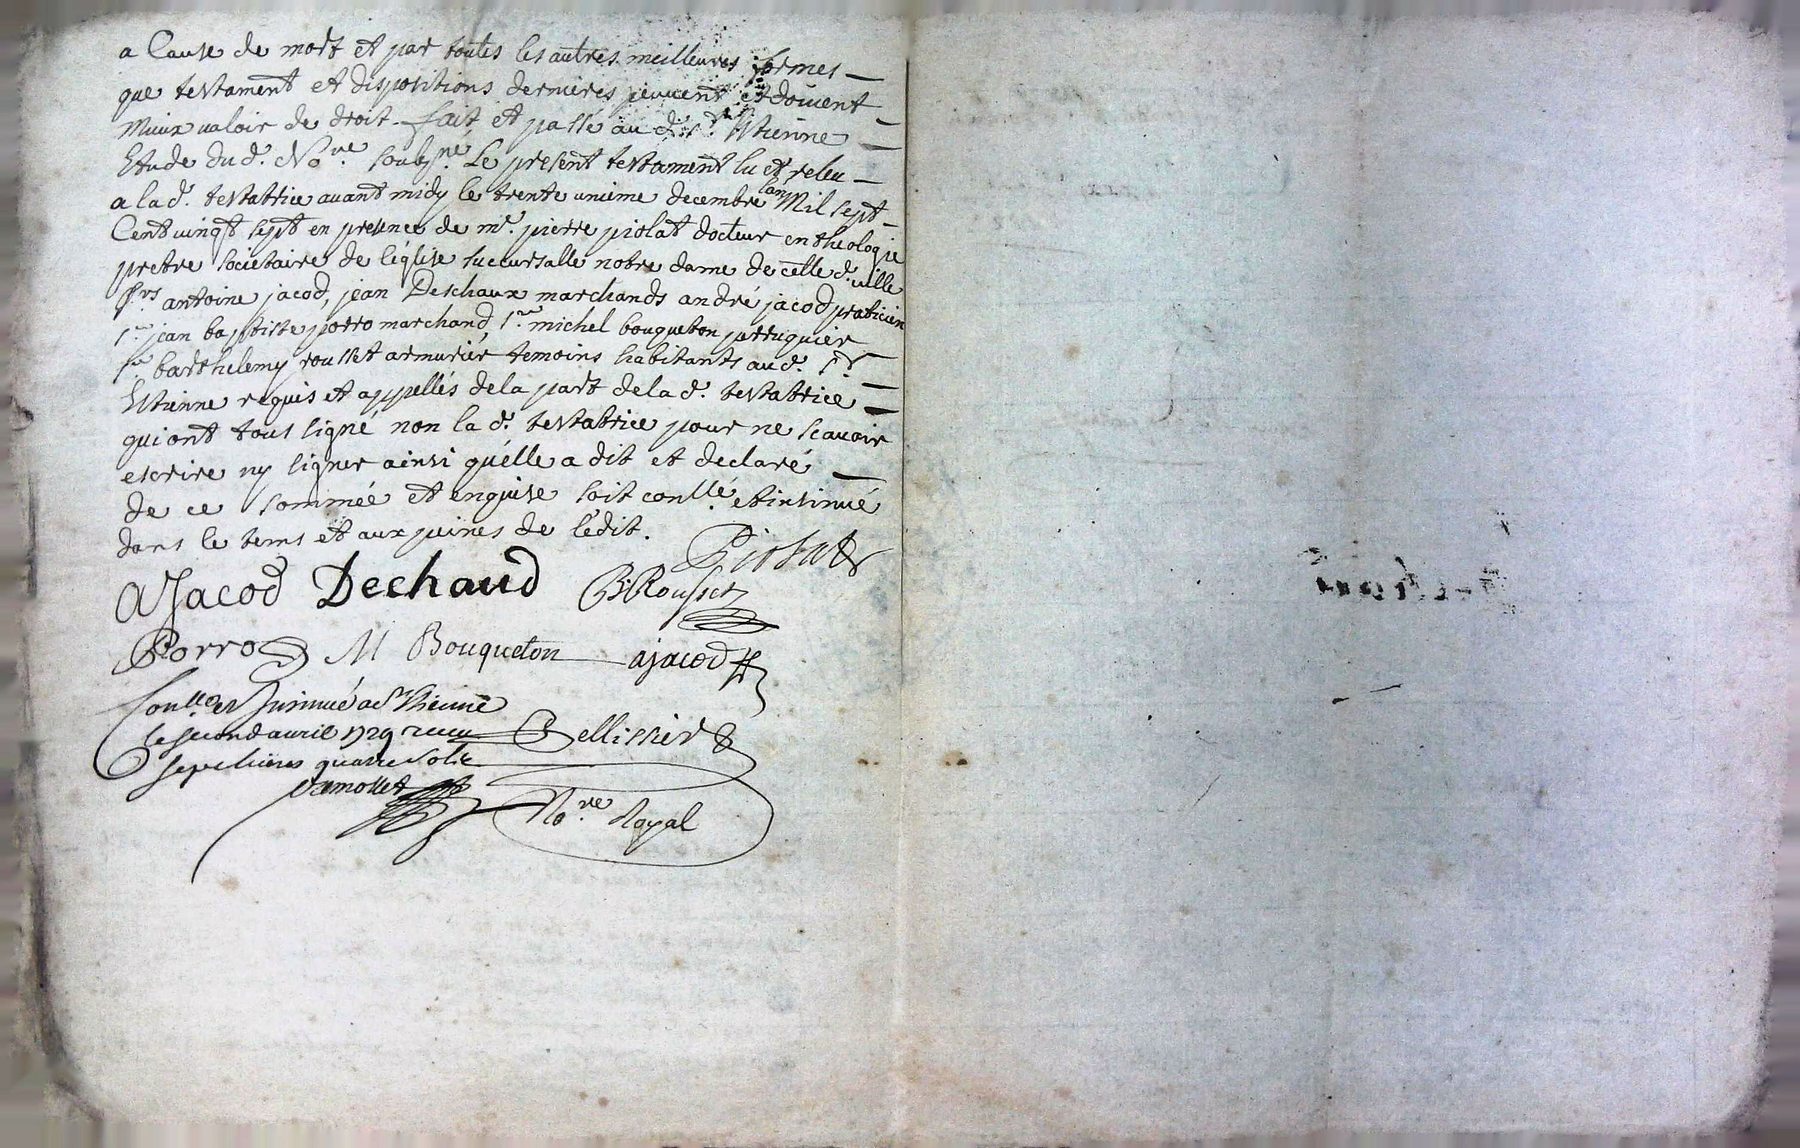 a Cause de mort et par toutes les autres meilleures formes
que testament et dispositions dernieres peuvent et doivent
Mieux valoir de droit. fait et passé au d. st. Etienne
Etude du d. No.re soubs.né Le present testament lu et releu
a la d. testatrice avant midy le trente unieme decembre lan Mil sept
Cent vingt sept en presence de m.r pierre piolat docteur en theologie
pretre societaire de l'église succursalle notre dame de celle d. ville
s.rs antoine jacod, jean Deschaux marchands andré jacod praticien
s.r jean baptiste porro marchand, s.r michel bouqueton perruquier
s.r barthelemy rousset armurier temoins habitants au d. st.
Etienne requis et appellés de la part de la d. testatrice
qui ont tous signé non la d. testatrice pour ne scavoir
escrire ny signer ainsi qu'elle a dit et declaré
de ce sommée et enquise soit conllé et insinué
dans le tems et aux peines de l'edit.
Piolat
AJacod Dechaud B. Rousset
Porro M Bouqueton ajacod
Conllé et Insinué a st Etienne
le second avril 1729 receu
sept livres quatre sols
Pellissier
No.re Royal